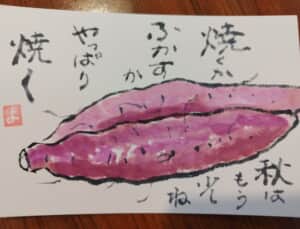 焼くか
ふかす
か
やっぱり
焼く
秋は
もう
少し
ね